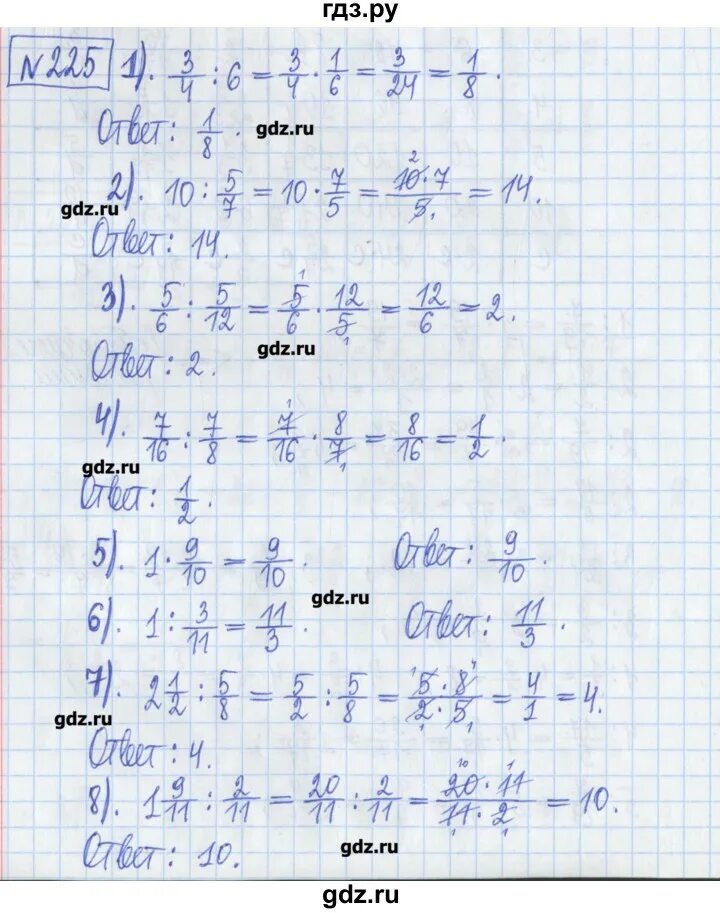 гдз.ру
№225 1). 3/4 : 6 = 3/4 · 1/6 = 3/24 = 1/8.
Ответ: 1/8.
gdz.ru
2). 10 : 5/7 = 10 · 7/5 = 10·7/5 = 14.
gdz.ru
Ответ: 14.
3). 5/6 : 5/12 = 5/6 · 12/5 = 12/6 = 2.
gdz.ru
Ответ: 2.
4). 7/16 : 7/8 = 7/16 · 8/7 = 8/16 = 1/2.
gdz.ru
Ответ: 1/2.
5). 1 · 9/10 = 9/10. Ответ: 9/10.
gdz.ru
6). 1 : 3/11 = 11/3. Ответ: 11/3.
7). 2 1/2 : 5/8 = 5/2 : 5/8 = 5·8/2·5 = 4/1 = 4.
gdz.ru
Ответ: 4.
8). 1 9/11 : 2/11 = 20/11 : 2/11 = 20·11/11·2 = 10.
Ответ: 10.
gdz.ru
gdz.ru